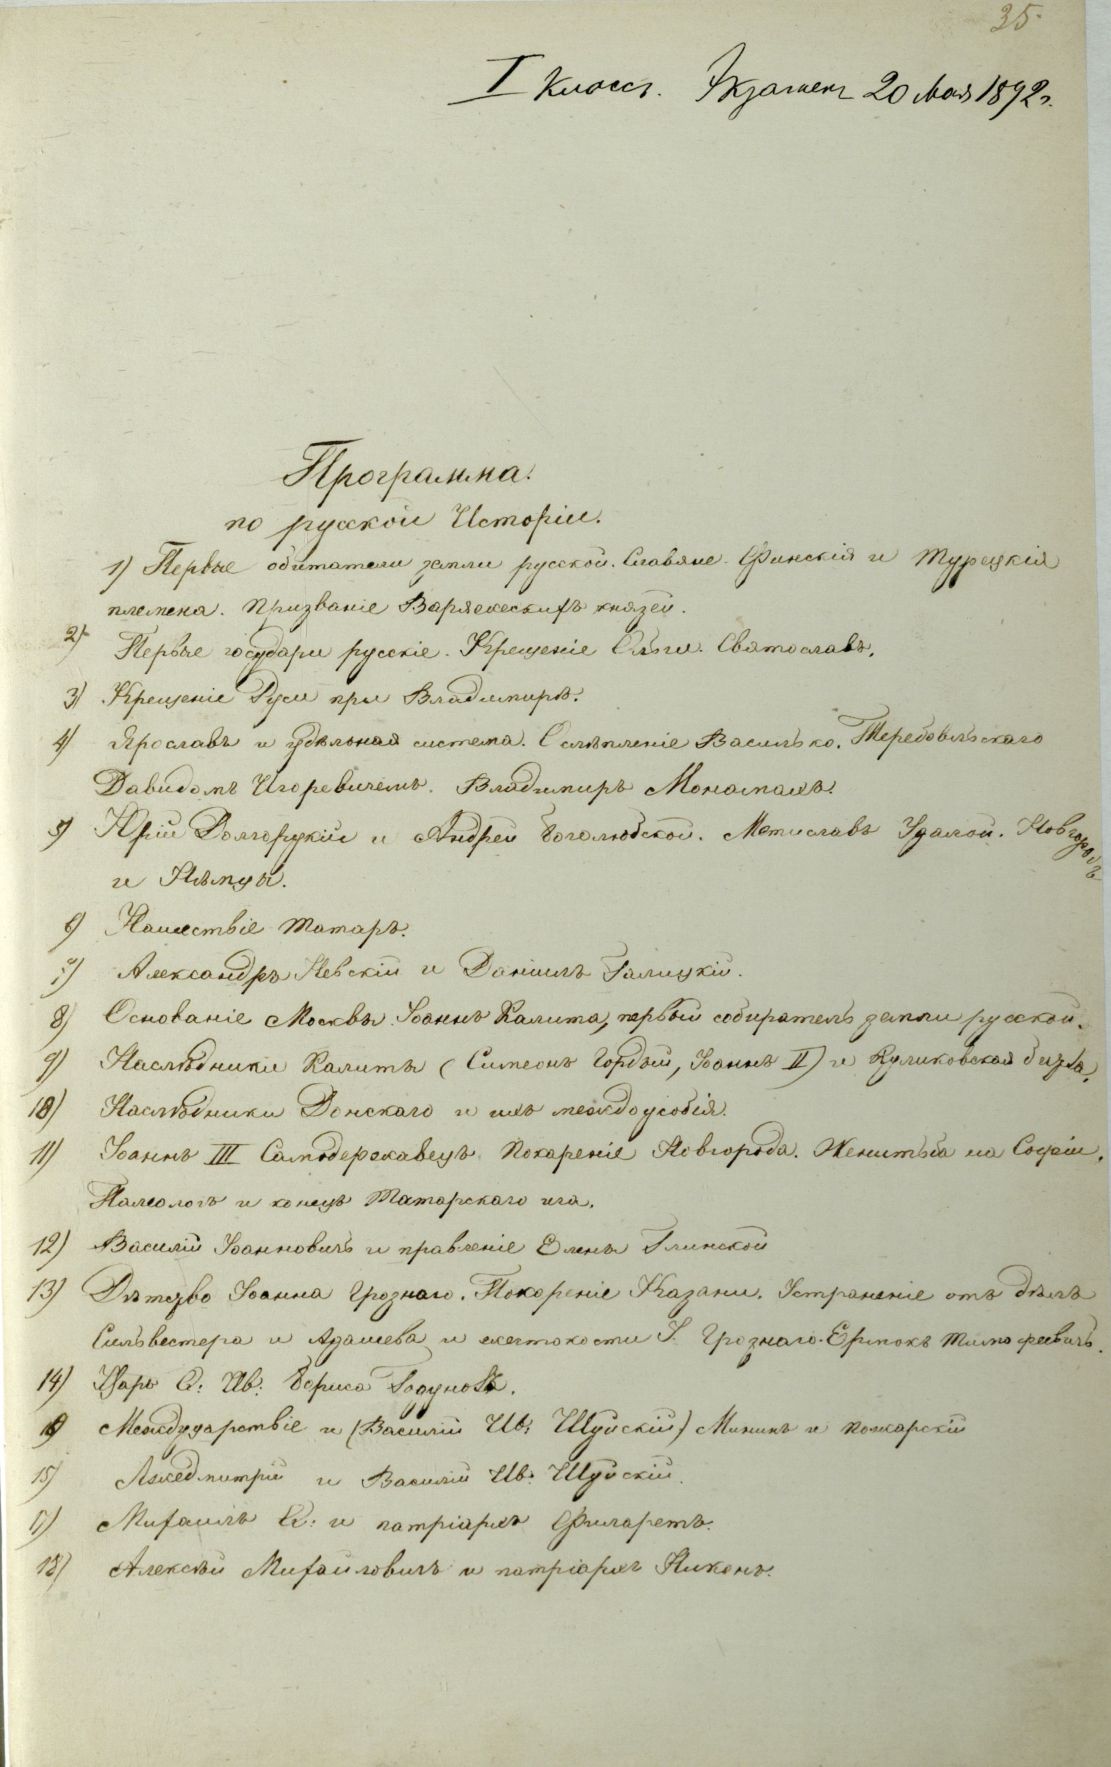 35.
I Классъ. Экзаменъ 20 Мая 1892 г.
Программа.
по русской Исторіи.
1) Первые обитатели земли русской. Славяне. Финскія и Турецкія
племена. Призваніе Варяжескихъ князей.
2) Первые государи русскіе. Крещеніе Ольги. Святославъ.
3) Крещеніе Руси при Владимирѣ.
4) Ярославъ и удѣльная система. Ослѣпленіе Василько. Теребовльскаго
Давидомъ Игоревичемъ. Владимиръ Мономахъ.
5) Юрій Долгорукій и Андрей Боголюбской. Мстиславъ Удалой. Новгородъ
и Нѣмцы.
6) Нашествіе татаръ.
7) Александръ Невскій и Даніилъ Галицкій.
8) Основаніе Москвы. Іоаннъ Калита, первый собиратель земли русской.
9) Наслѣдники Калиты (Симеонъ Гордый, Іоаннъ II) и Куликовская битва.
10) Наслѣдники Донскаго и ихъ междоусобія.
11) Іоаннъ III Самодержавецъ. Покареніе Новгорода. Женитьба на Софіи.
Палеологъ и конецъ Татарскаго ига.
12) Василій Іоанновичъ и правленіе Елены Глинской
13) Дѣтство Іоанна Грознаго. Покореніе Казани. Устраненіе отъ дѣлъ
Сильвестера и Адашева и жестокости І. Грознаго. Ермакъ Тимофеевичъ.
14) Царь Ѳ: Ив: Бориса Годуновъ.
Междуцарствіе и (Василій Ив: Шуйскій) Мининъ и Пожарскій
15) Лжедмитрій и Василій Ив: Шуйскій.
17) Михаилъ Ѳ: и патріархъ Филаретъ.
18) Алексѣй Михайловичъ и патріархъ Никонъ.